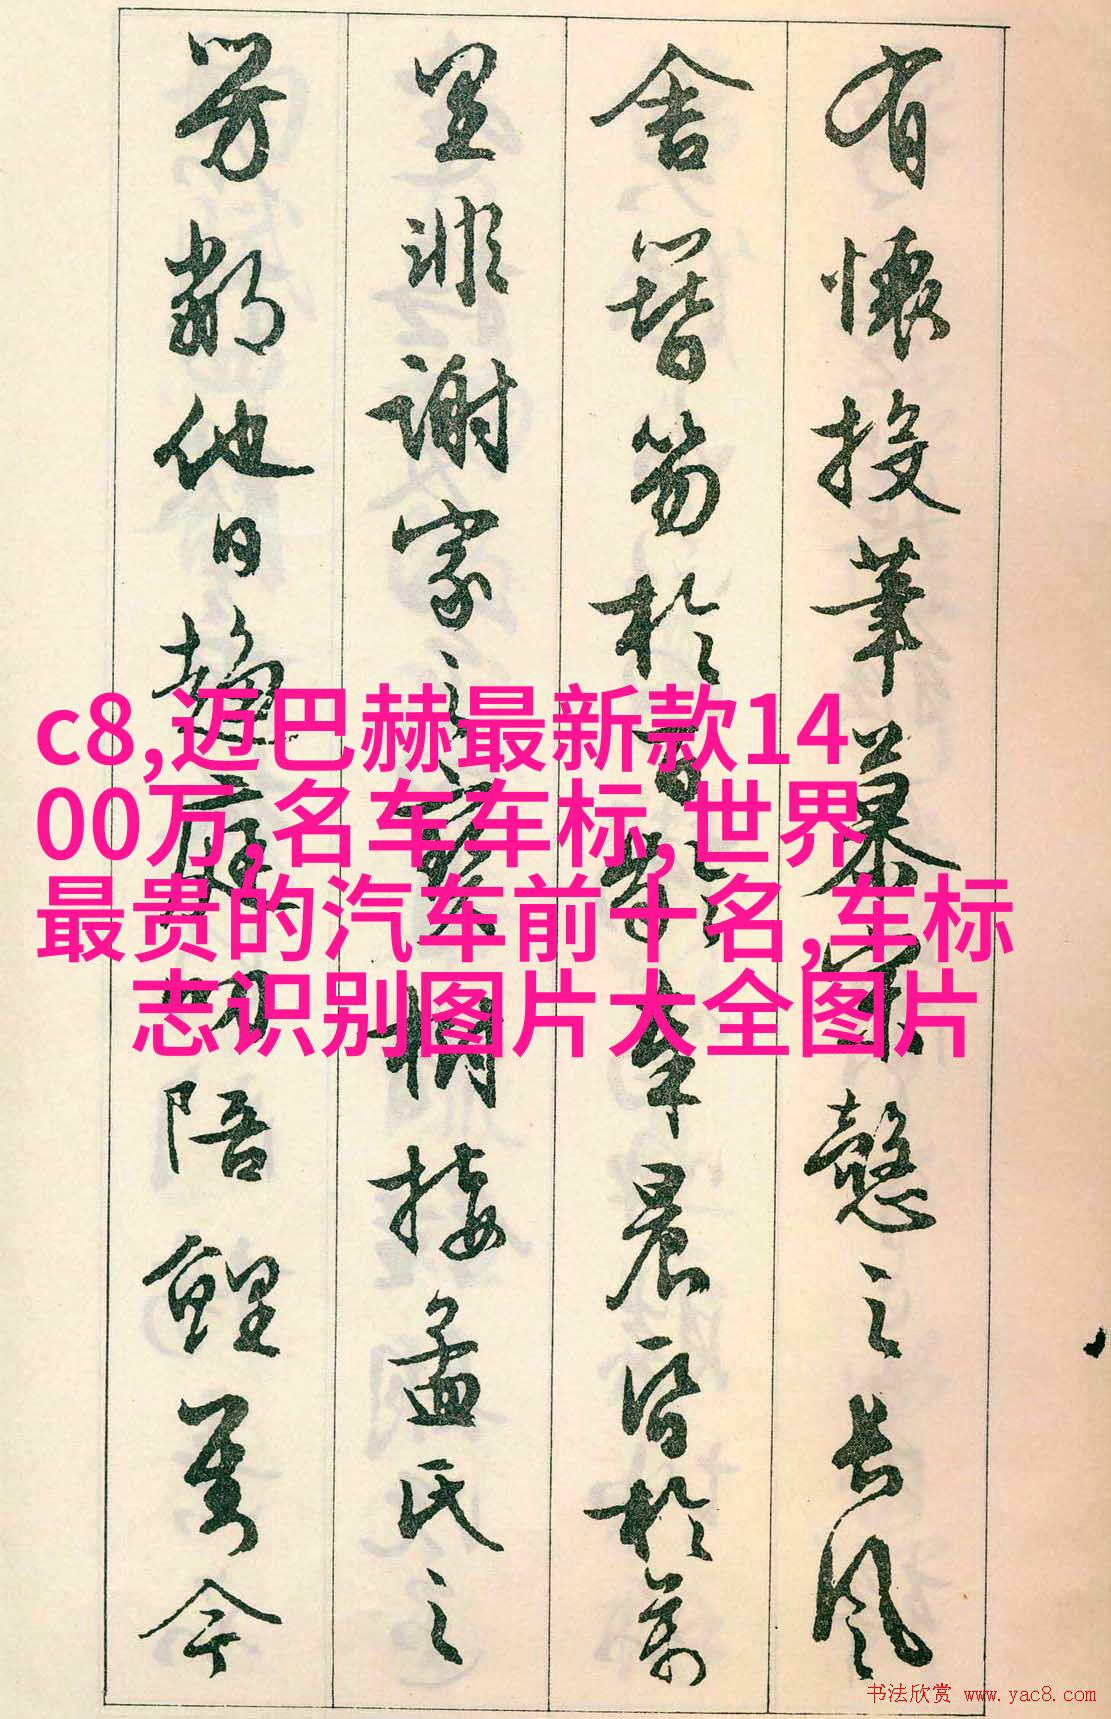 有懷投筆慕宗慤之長風
舍簪笏於百齡奉晨昏於萬
里非謝家之寶樹接孟氏之
芳鄰他日趨庭叨陪鯉對今
c8,迈巴赫最新款14
00万,名车车标,世界
最贵的汽车前十名,车标
志识别图片大全图片
书法欣赏 www.yac8.com